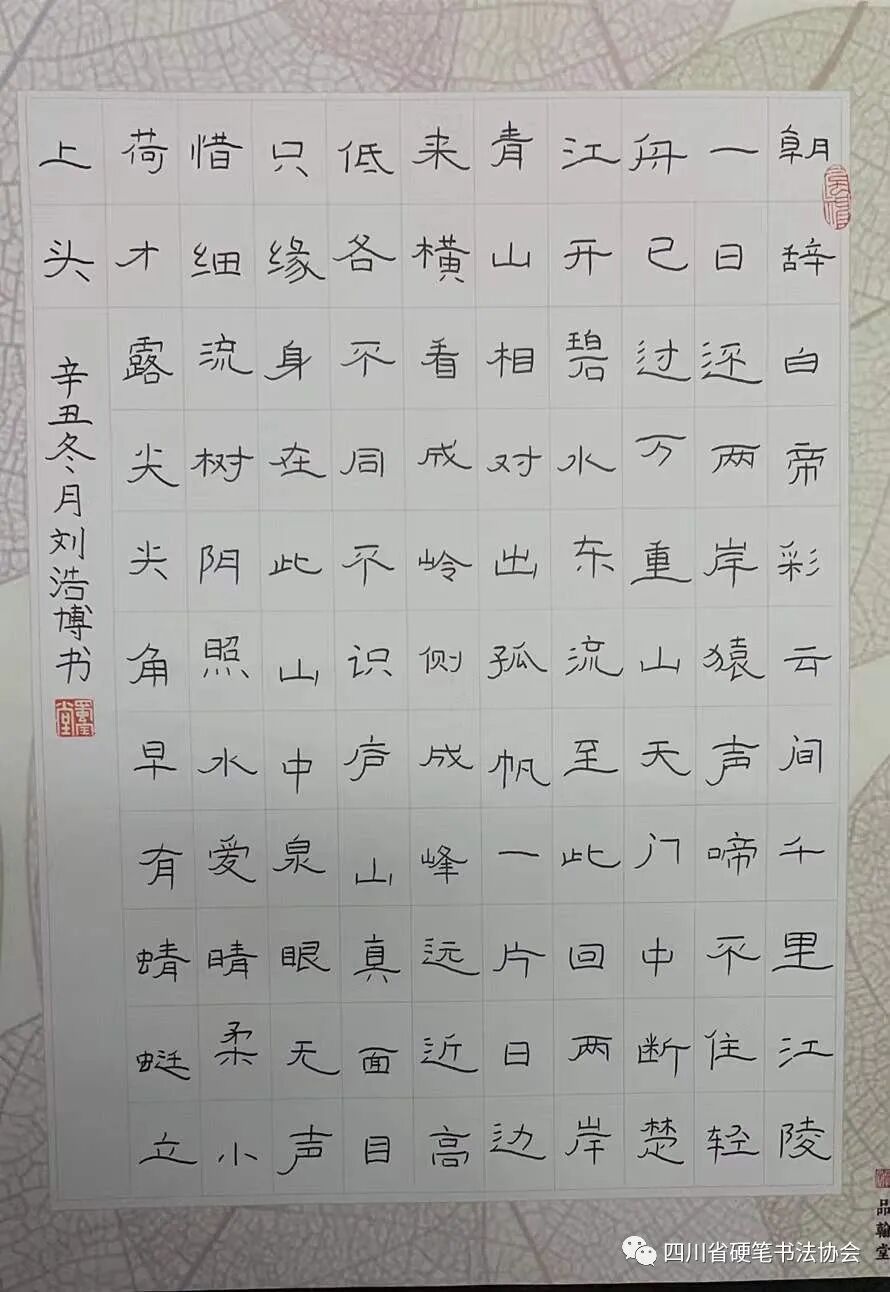 朝辞白帝彩云间千里江陵
一日还两岸猿声啼不住轻
舟已过万重山天门中断楚
江开碧水东流至此回两岸
青山相对出孤帆一片日边
来横看成岭侧成峰远近高
低各不同不识庐山真面目
只缘身在此山中泉眼无声
惜细流树阴照水爱晴柔小
荷才露尖尖角早有蜻蜓立
上头
辛丑冬月刘浩博书
品翰堂
四川省硬笔书法协会